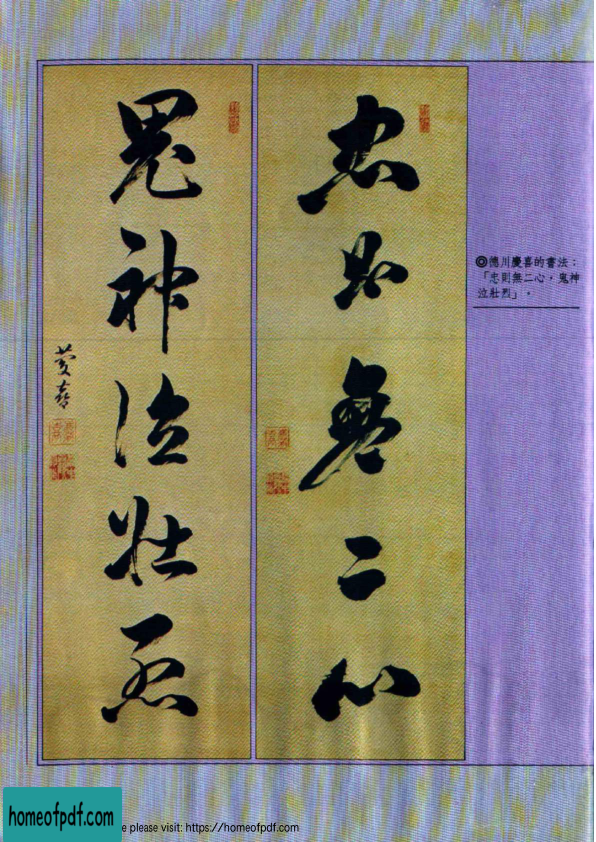 忠則無二心
鬼神泣壯烈
慶喜
◎德川慶喜的書法：
「忠則無二心，鬼神
泣壯烈」。
homeofpdf.com
e please visit: https://homeofpdf.com